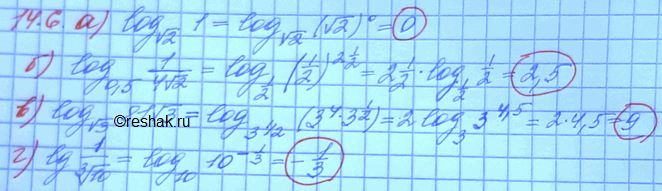 14.6. а) log_√2 1 = log_√2 (√2)⁰ = 0
б) log_0,5 1/(4√2) = log_1/2 (1/2)^(2 1/2) = 2 1/2 · log_1/2 1/2 = 2,5
в) log_√3 81√3 = log_3^1/2 (3⁴·3^(1/2)) = 2 log_3 3^4,5 = 2·4,5 = 9
©reshak.ru
г) lg 1/∛10 = log_10 10^(-1/3) = -1/3